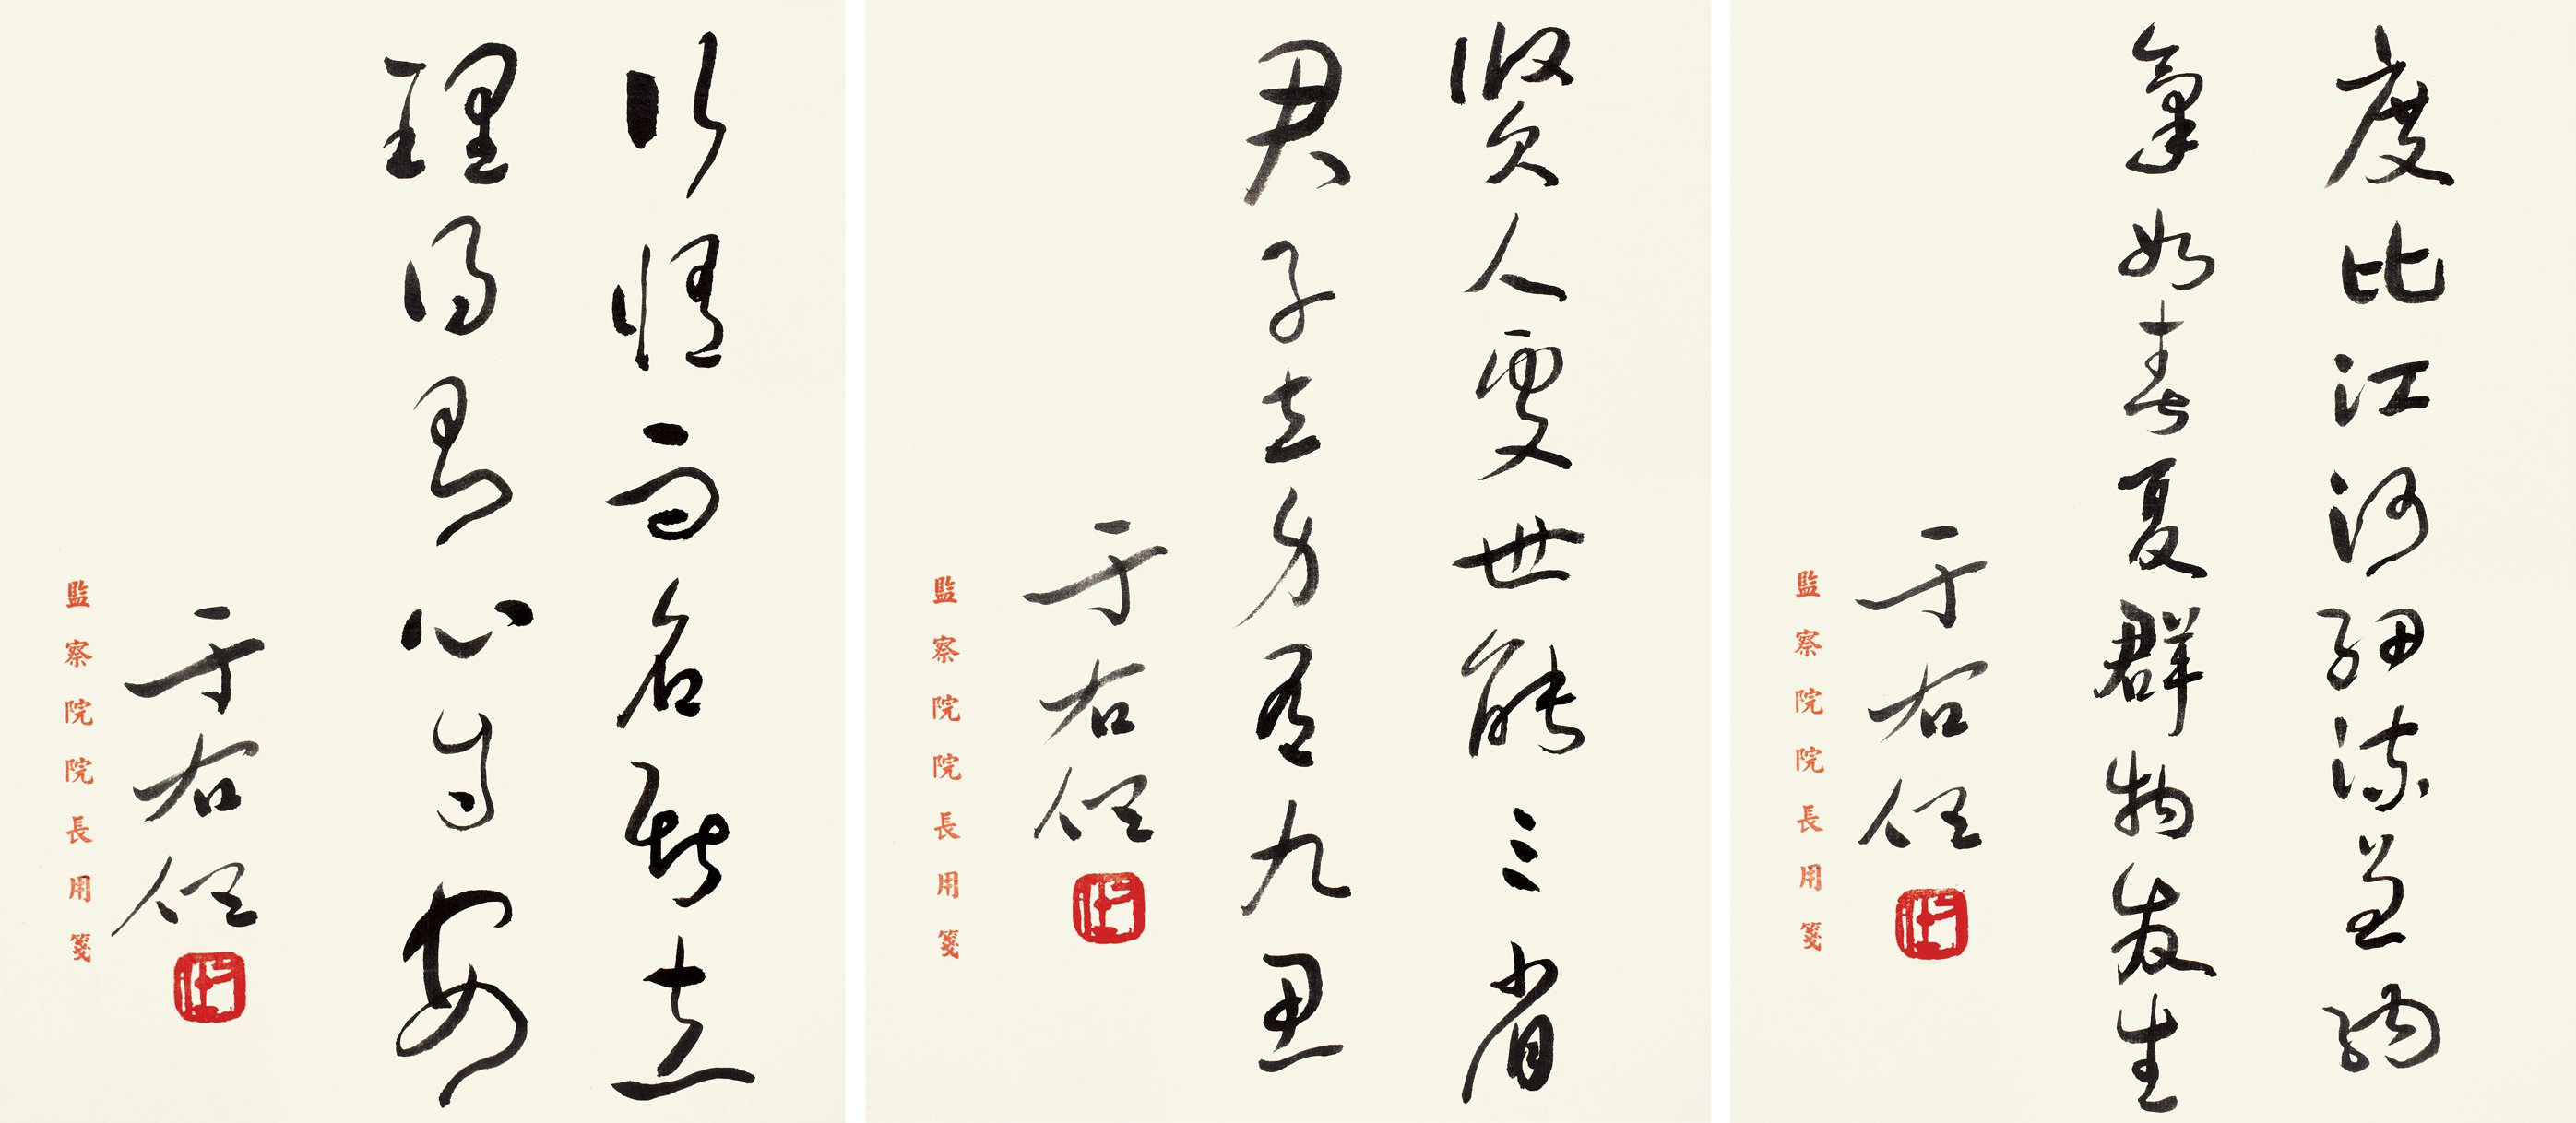 度比江河細流兼納
氣如春夏群物發生
于右任
監察院院長用箋
賢人處世能三省
君子立身有九思
于右任
監察院院長用箋
情而名斯立
理得即心自安
于右任
監察院院長用箋